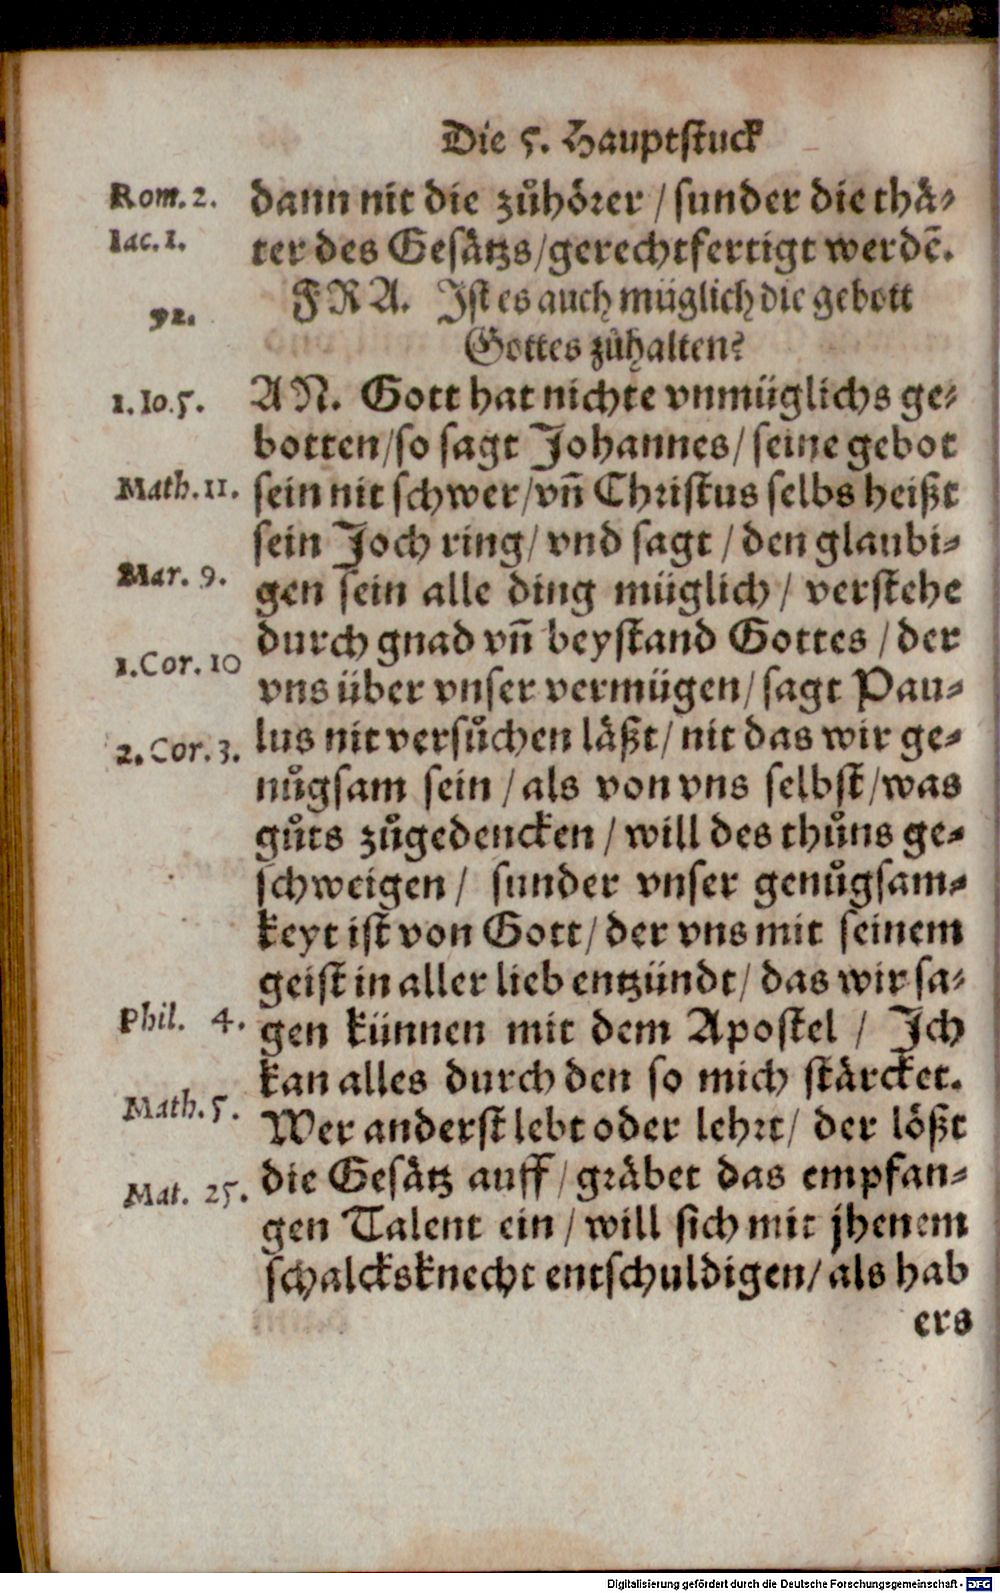 Die 5. Hauptstuck
Rom. 2. dann nit die zůhörer / sunder die thä-
Iac. 1. ter des Gesätzs / gerechtfertigt werdẽ.
92. FRA. Ist es auch müglich die gebott
Gottes zůhalten?
1. Io. 5. AN. Gott hat nichte vnmüglichs ge-
botten / so sagt Johannes / seine gebot
Math. 11. sein nit schwer / vñ Christus selbs heißt
sein Joch ring / vnd sagt / den glaubi-
Mar. 9. gen sein alle ding müglich / verstehe
durch gnad vñ beystand Gottes / der
1. Cor. 10 vns über vnser vermügen / sagt Pau-
2. Cor. 3. lus nit versůchen läßt / nit das wir ge-
nůgsam sein / als von vns selbst / was
gůts zůgedencken / will des thůns ge-
schweigen / sunder vnser genůgsam-
keyt ist von Gott / der vns mit seinem
geist in aller lieb entzündt / das wir sa-
Phil. 4. gen künnen mit dem Apostel / Ich
kan alles durch den so mich stärcket.
Math. 5. Wer anderst lebt oder lehrt / der lößt
Mat. 25. die Gesätz auff / gräbet das empfan-
gen Talent ein / will sich mit jhenem
schalcksknecht entschuldigen / als hab
ers
Digitalisierung gefördert durch die Deutsche Forschungsgemeinschaft - DFG